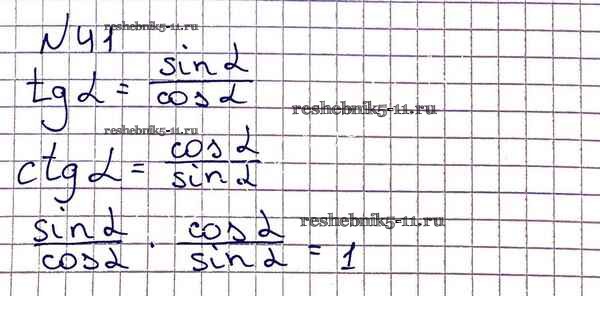 №41
reshebnik5-11.ru
tg α = sin α / cos α
reshebnik5-11.ru
reshebnik5-11.ru
ctg α = cos α / sin α
reshebnik5-11.ru
sin α / cos α · cos α / sin α = 1